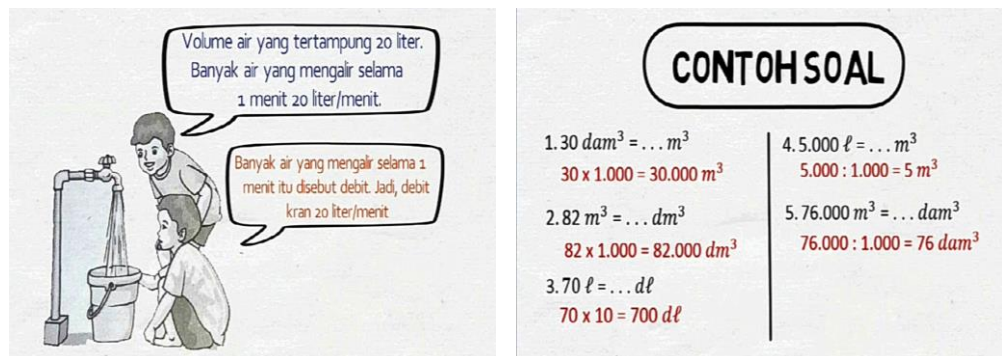 Volume air yang tertampung 20 liter.
Banyak air yang mengalir selama
1 menit 20 liter/menit.
Banyak air yang mengalir selama 1
menit itu disebut debit. Jadi, debit
kran 20 liter/menit
CONTOH SOAL
1. 30 dam³ = . . . m³
30 x 1.000 = 30.000 m³
2. 82 m³ = . . . dm³
82 x 1.000 = 82.000 dm³
3. 70 ℓ = . . . dℓ
70 x 10 = 700 dℓ
4. 5.000 ℓ = . . . m³
5.000 : 1.000 = 5 m³
5. 76.000 m³ = . . . dam³
76.000 : 1.000 = 76 dam³